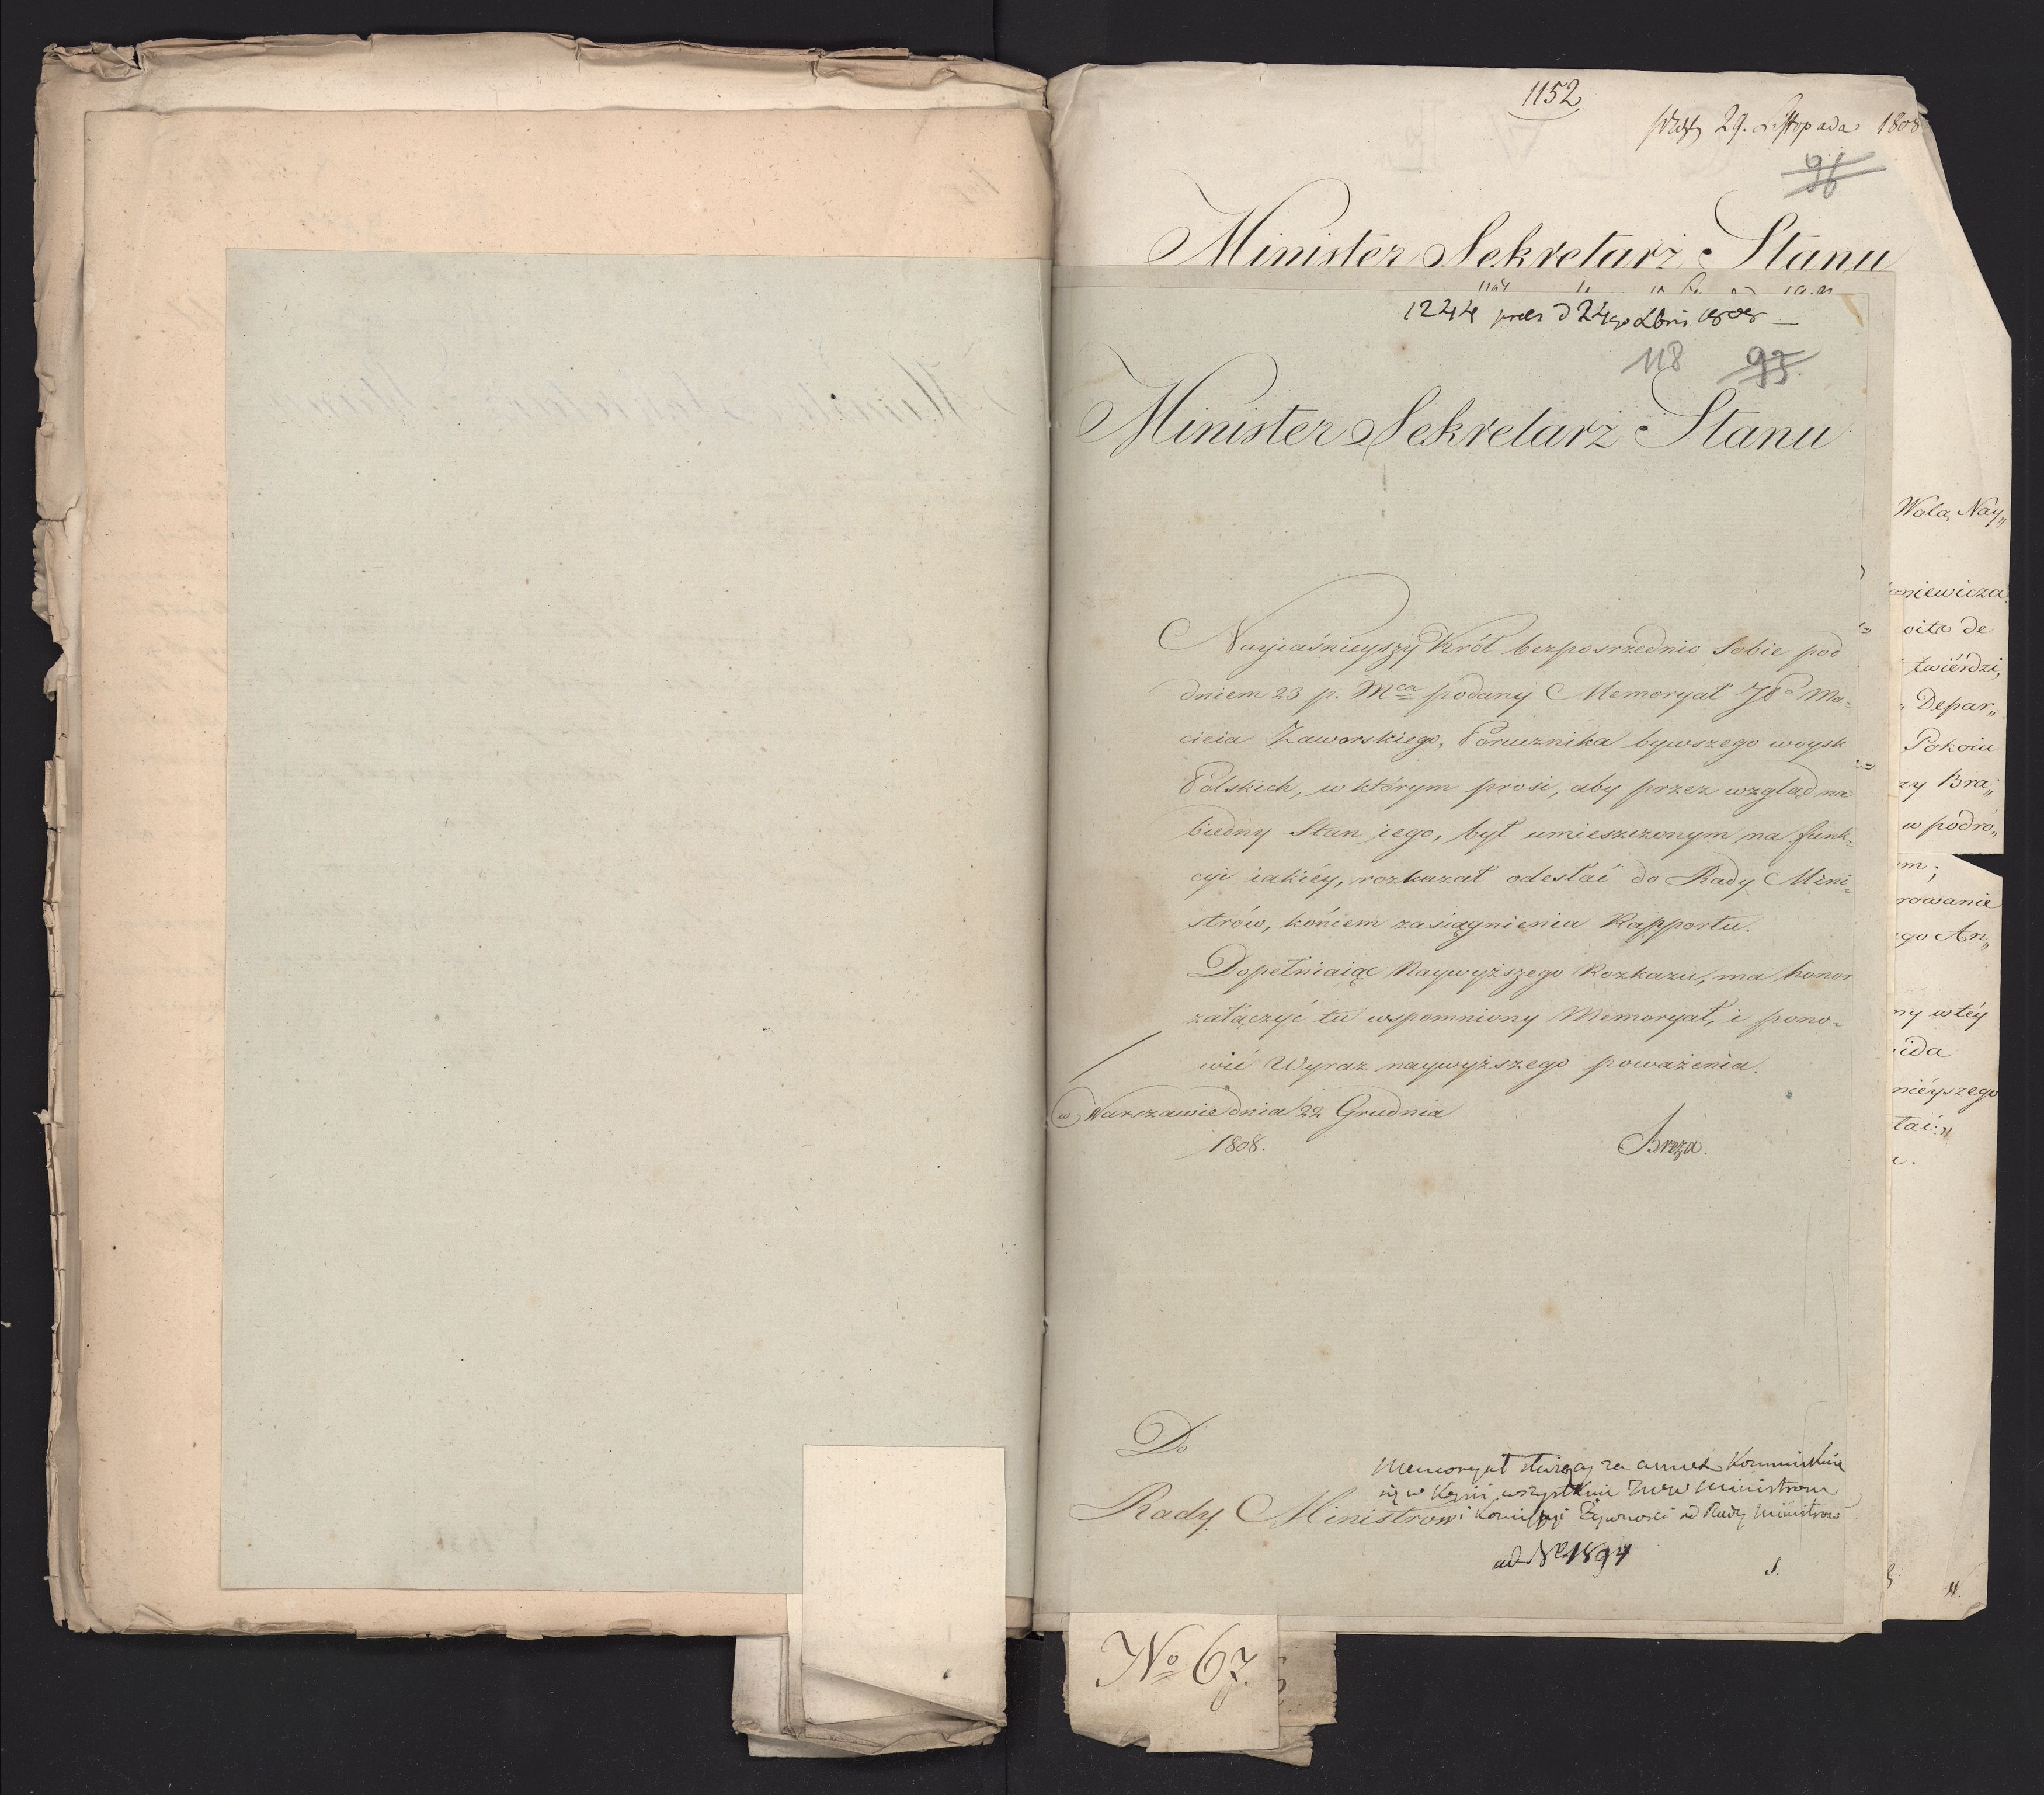 1152
29. Listopada 1808
96
Minister Sekretarz Stanu
1244 praes d 24go Xbris 1808 —
118 97.
Minister Sekretarz Stanu
Nayiaśnieyszy Król bezposrzednio Sobie pod
dniem 23 p. Mca podany Memoryał JPa Ma=
cieia Zaworskiego, Porucznika bywszego woysk
Polskich, w którym prosi, aby przez wzgląd na
biedny Stan iego, był umieszczonym na funk=
cyi iakiéy, rozkazał odesłać do Rady Mini=
strów, końcem zasiągnienia Rapportu.
Dopełniaiąc Naywyższego Rozkazu, ma honor
załączyć tu wspomniony Memoryał, i pono=
wić Wyraz naywyższego poważenia.
w Warszawie dnia 22 Grudnia
1808.
Breza.
Do
Rady Ministrow
Memoryał służący za annex
się w Kopii wszystkim JWW Ministrom
i Kommissyi Żywności od Rady Ministrow
ad No 1894
S.
No 67.
Wolą Nay„
niewicza
oita de
twiérdzi,
Depar„
Pokoiu
zy Bra„
w podró„
m;
rowanie
go An„
ny w téy
ida
nieyszego
łać„
a.